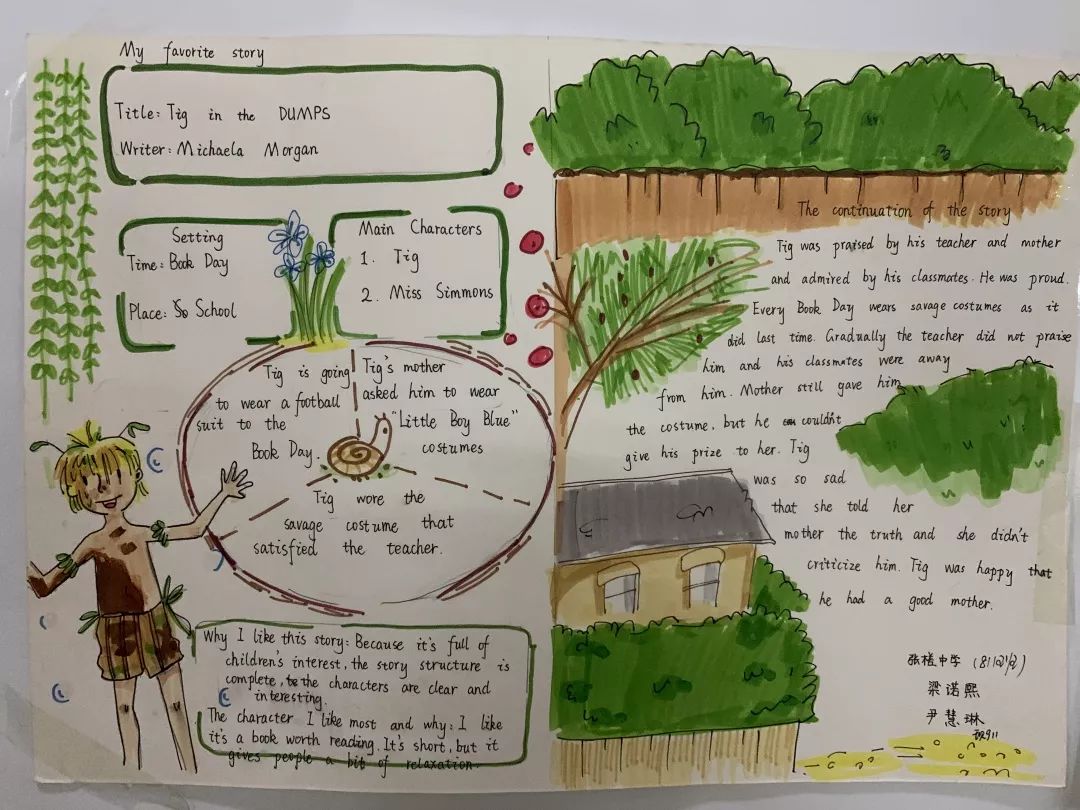 My favorite story
Title: Tig in the DUMPS
Writer: Michaela Morgan
Setting
Time: Book Day
Place: School
Main Characters
1. Tig
2. Miss Simmons
Tig is going
to wear a football
suit to the
Book Day.
Tig's mother
asked him to wear
"Little Boy Blue"
costumes
Tig wore the
savage costume that
satisfied the teacher.
Why I like this story: Because it's full of
children's interest, the story structure is
complete, the characters are clear and
interesting.
The character I like most and why: I like
it's a book worth reading. It's short, but it
gives people a bit of relaxation.
The continuation of the story
Tig was praised by his teacher and mother
and admired by his classmates. He was proud.
Every Book Day wears savage costumes as it
did last time. Gradually the teacher did not praise
him and his classmates were away
from him. Mother still gave him
the costume, but he couldn't
give his prize to her. Tig
was so sad
that she told her
mother the truth and she didn't
criticize him. Tig was happy that
he had a good mother.
张槎中学
梁诺熙
尹慧琳